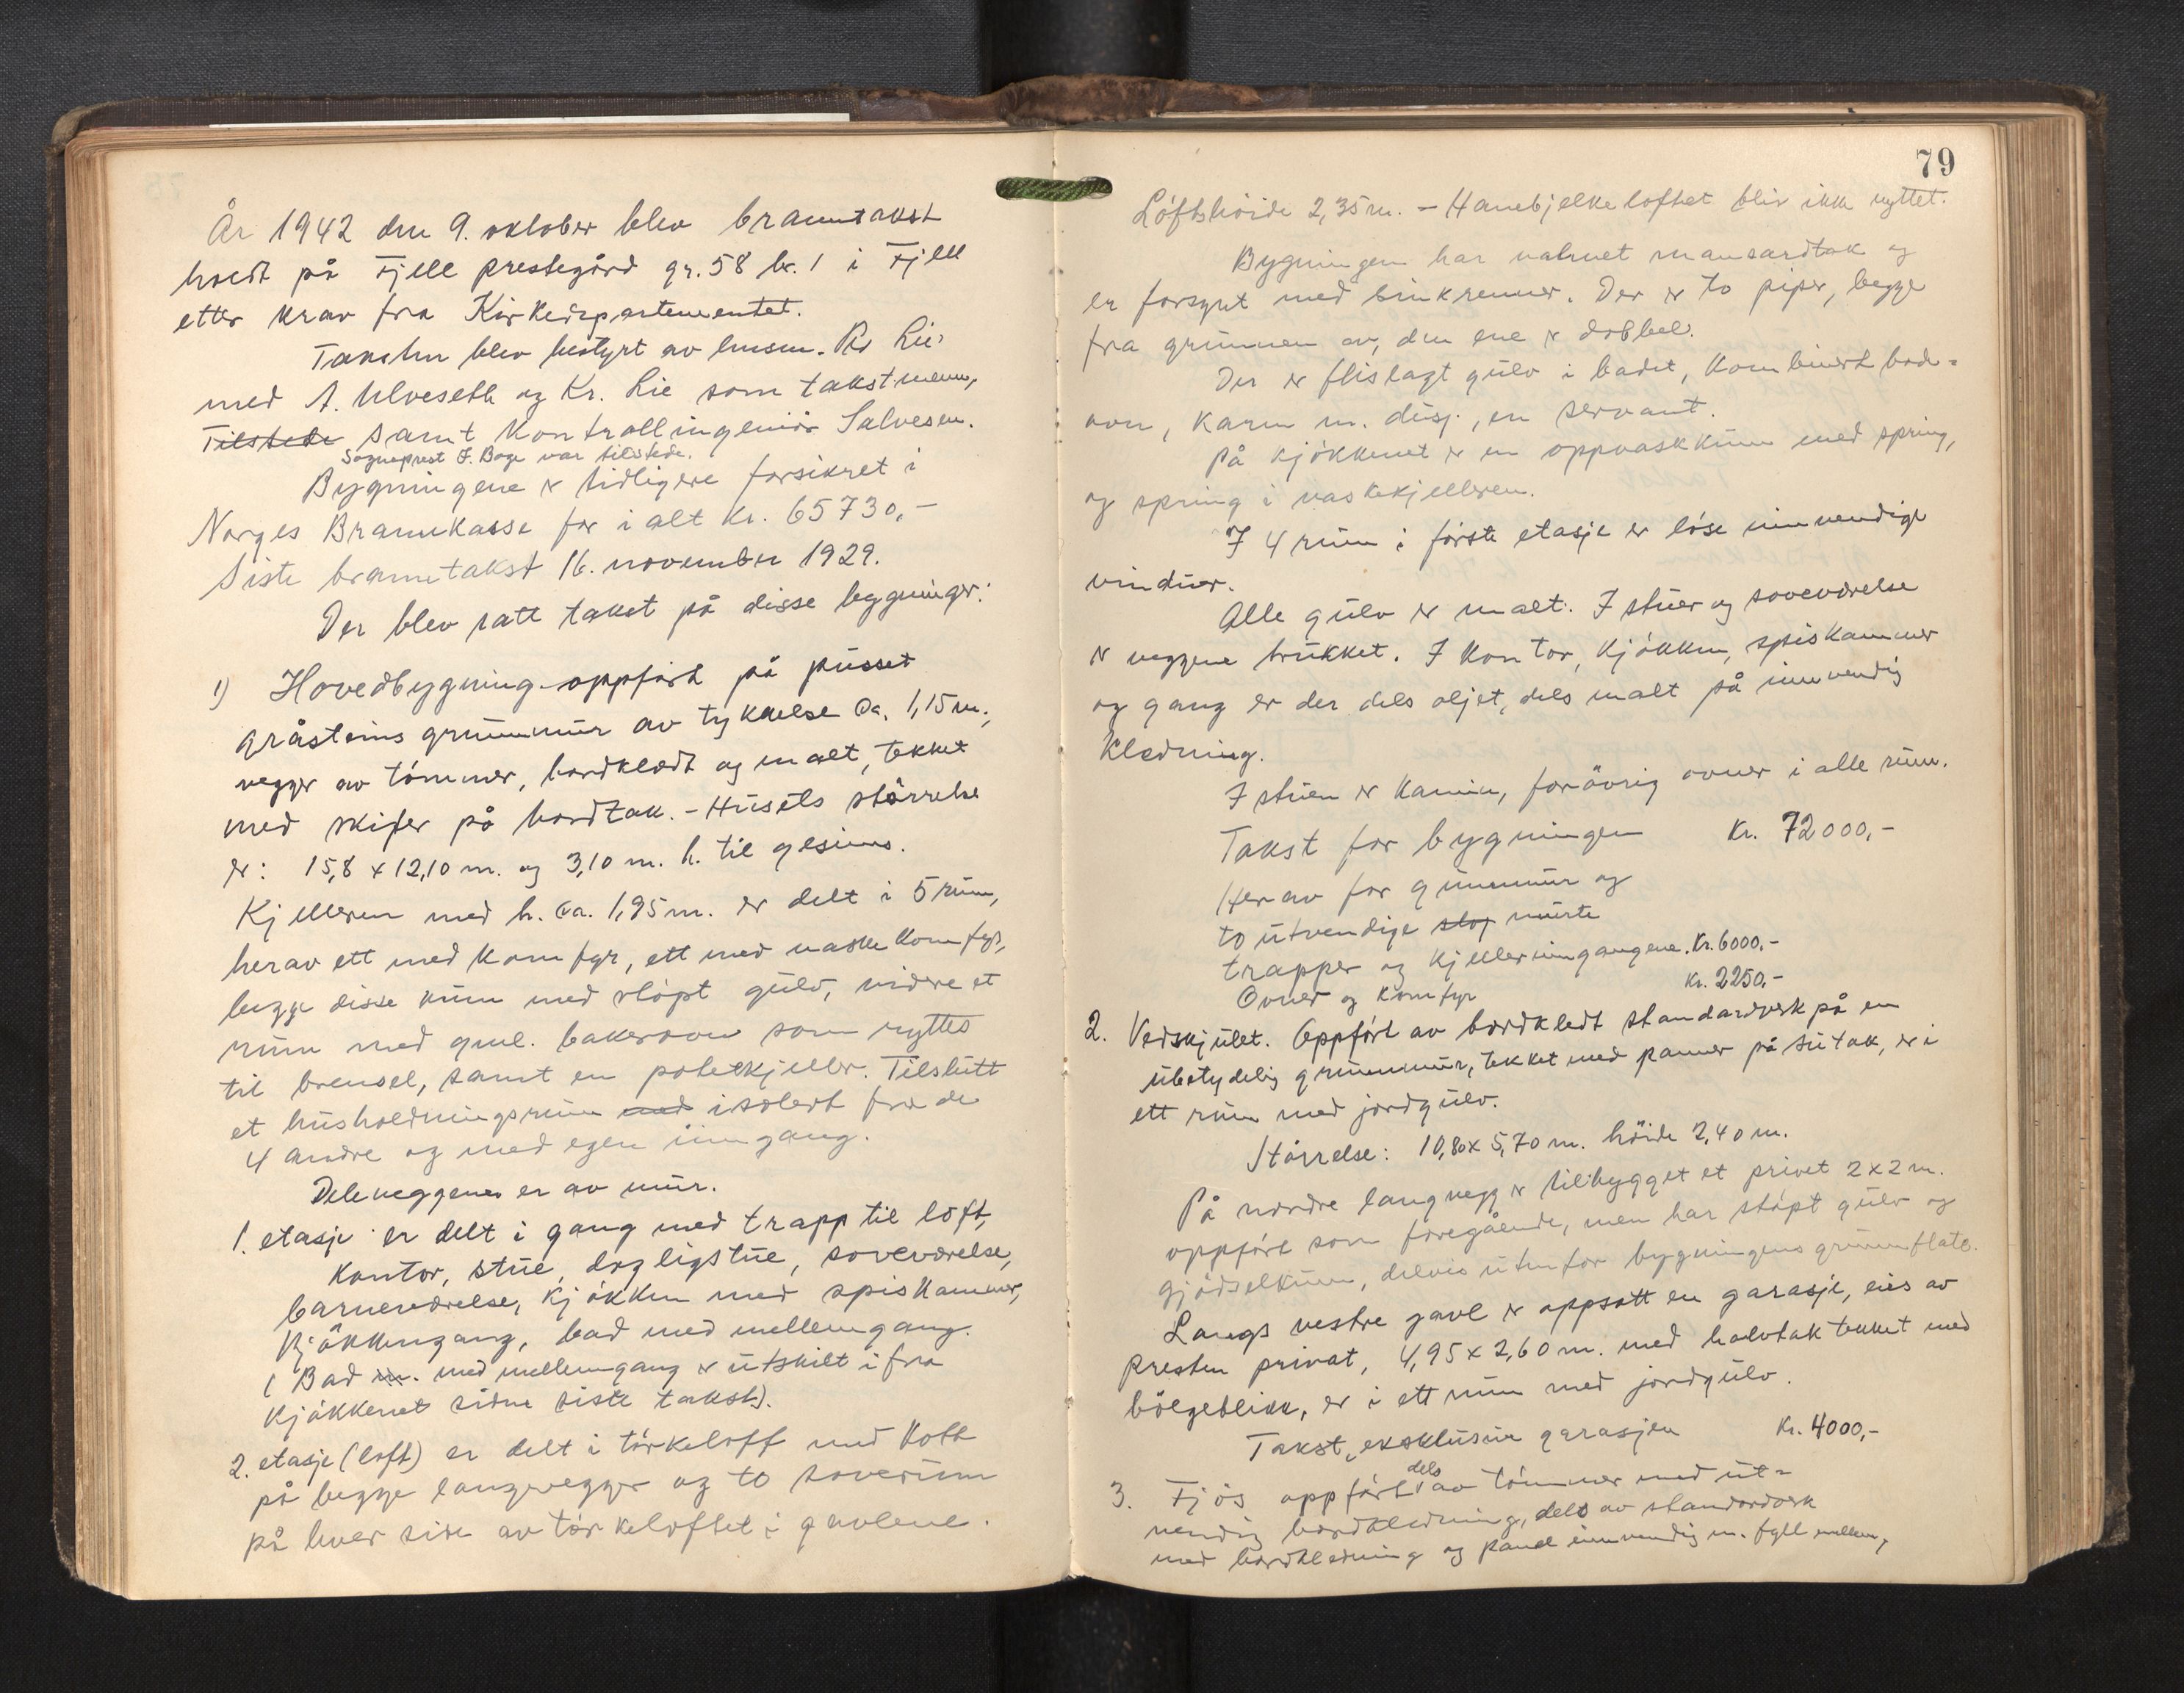 År 1942 den 9. oktober blev branntakst
holdt på Fjell prestegård gr. 58 br. 1 i Fjell
etter krav fra Kirkedepartementet.
Taksten blev bestyrt av lensm. Lie
med A. Ulveseth og Kr. Lie som takstmenn,
Tilstede samt Kontrollingeniör Salvesen.
Sogneprest J. Bage var tilstede.
Bygningene er tidligere forsikret i
Norges Brannkasse for i alt kr. 65730,-
Siste branntakst 16. november 1929.
Der blev satt takst på disse bygninger:
1) Hovedbygning oppført på pusset
gråsteins grunnmur av tykkelse ca. 1,15 m.,
vegger av tömmer, bordklædt og malt, tekket
med skifer på bordtak. - Husets störrelse
er: 15,8 x 12,10 m. og 3,10 m. h. til gesims.
Kjelleren med h. ca. 1,95 m. er delt i 5 rum,
herav ett med komfyr, ett med vaskekomfyr,
begge disse rum med stöpt gulv, videre et
rum med gml. bakerovn som nyttes
til brensel, samt en potetkjeller. Tilslutt
et husholdningsrum med isolert fra de
4 andre og med egen inngang.
Deleveggene er av mur.
1. etasje er delt i gang med trapp til loft,
kontor, stue, dagligstue, soveværelse,
barneværelse, kjökken med spiskammer,
kjökkengang, bad med mellemgang.
(Bad m. med mellemgang er utskilt ifra
kjökkenet siden siste takst).
2. etasje (loft) er delt i törkeloft med kott
på begge langvegger og to soverum
på hver side av törkeloftet i gavlene.
79
Loftshöide 2,35 m. - Hanebjelkeloftet blir ikke nyttet.
Bygningen har valmet mansardtak og
er forsynt med sinkrenner. Der er to piper, begge
fra grunnen av, den ene er dobbel.
Der er flislagt gulv i badet, kombinert bade-
ovn, karm m. dusj, en servant.
På kjökkenet er en oppvaskkum med spring,
og spring i vaskekjelleren.
I 4 rum i förste etasje er löse innvendige
vinduer.
Alle gulv er malt. I stuer og soveværelse
er veggene trukket. I kontor, kjökken, spiskammer
og gang er der dels oljet, dels malt på innvendig
kledning.
I stuen er kamin, forövrig ovner i alle rum.
Takst for bygningen kr. 72000,-
Herav for grunnmur og
to utvendige stop murte
trapper og kjellerinngangene. kr. 6000,-
Ovner og komfyr kr. 2250,-
2. Vedskjulet. Oppfört av bordkledt standardverk på en
ubetydelig grunnmur, tekket med panner på sutak, er i
ett rum med jordgulv.
Störrelse: 10,80 x 5,70 m. höide 2,40 m.
På nordre langvegg er tilbygget et privet 2 x 2 m.
oppfört som foregående, men har stöpt gulv og
gjödselkum, delvis utenfor bygningens grunnflate.
Langs vestre gavl er oppsatt en garasje, eies av
presten privat, 4,95 x 2,60 m. med halvtak tekket med
bölgeblikk, er i ett rum med jordgulv.
Takst, eksklusive garasjen kr. 4000,-
3. Fjös oppfört dels av tömmer med ut-
vendig bordkledning, dels av standardverk
med bordkledning og panel innvendig m. fyll mellem,